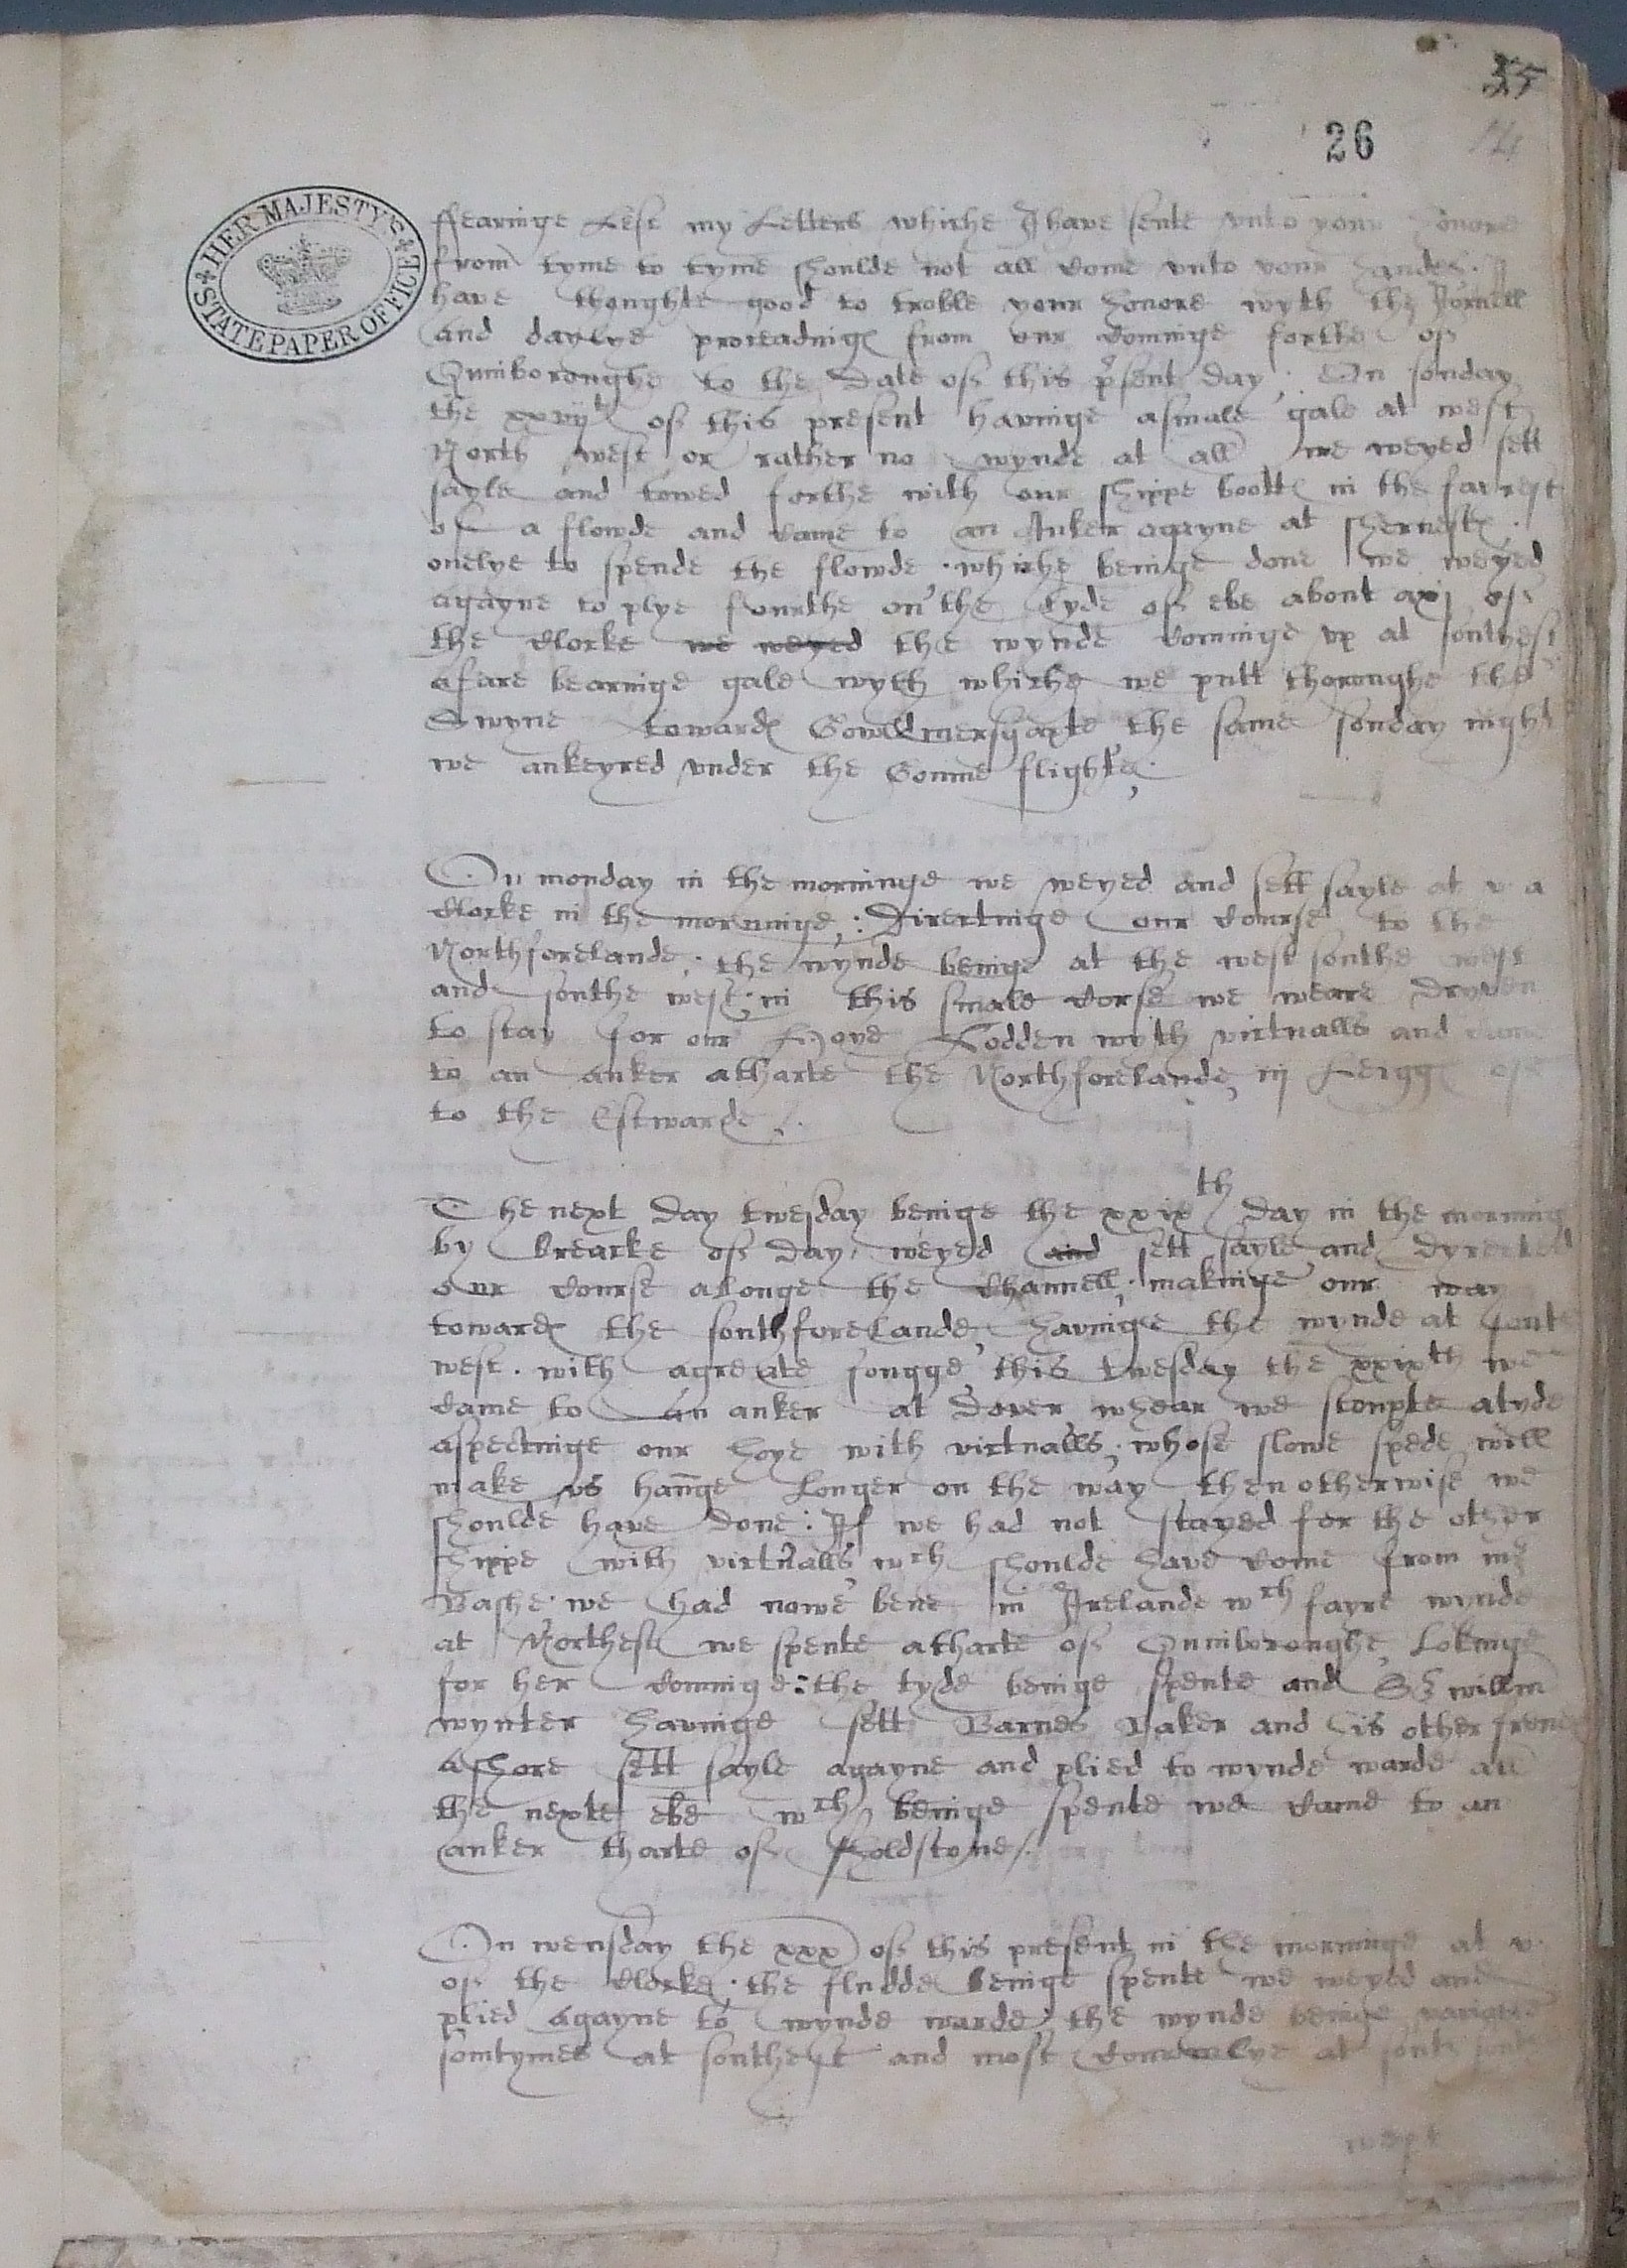 35
26
14
HER MAJESTY'S
STATE PAPER OFFICE
ffearinge Lest my Letters whiche I have sente unto your honore
from tyme to tyme shoulde not all come unto your handes. I
have thoughte good to troble your honore wyth the Jornell
and daylye proceadinges from our cominge forthe of
Quinboroughe to the date of this present day. On sonday
the of this present havinge a smale gale at west
North west or rather no wynde at all we weyed sett
sayle and towed forthe with our shippe bootes in the
of a flowde and came to an Anker agayne at
onelye to spende the flowde. whiche beinge done we weyed
agayne to plye fourthe on the tyde of ebe about of
the clocke we weyed the wynde cominge up at southest
a fare bearinge gale wyth whiche we putt thoroughe the
Swyne towardes the same sonday night
we ankeyred under the Gonne flighte.
On monday in the morninge we weyed and sett sayle at v a
clocke in the morninge: Directinge our course to the
Northforelande. the wynde beinge at the west southe west
and southe west. in this smale corse we weare dryven
to stay for our Hoye Lodden wyth victualls and came
to an anker atharte the Northforelande iij of
to the Estwarde.
The next day twesday beinge the xxixth day in the morning
by breacke of day, weyed and sett sayle and dyrected
our course alonge the Channell, makinge our way
towardes the southforelande, havinge the wynde at south
west. with a greate fougge this twesday the xxixth we
came to an anker at Dover whear we stoupte a tyde
aspectinge our hoye with victualls, whose slowe spede will
make us hannge Longer on the way then otherwise we
shoulde have done: If we had not stayed for the other
shippe with victualls wch shoulde have come from mr
Bashe we had nowe bene in Irelande wch fayre wynde
at Northest we spente atharte of Quinboroughe Lokinge
for her cominge: the tyde beinge spente and Sr willm
wynter havinge sett Barnes Baker and is other frendes
a shore sett sayle agayne and plied to wynde warde all
the nexte ebe wch beinge spente we came to an
anker tharte of ffoldstone.
On wensday the xxx of this present in the morninge at v.
of the clocke. the fludde beinge spente we weyed and
plied agayne to wynde warde the wynde beinge
somtymes at southest and most comonlye at south south
west